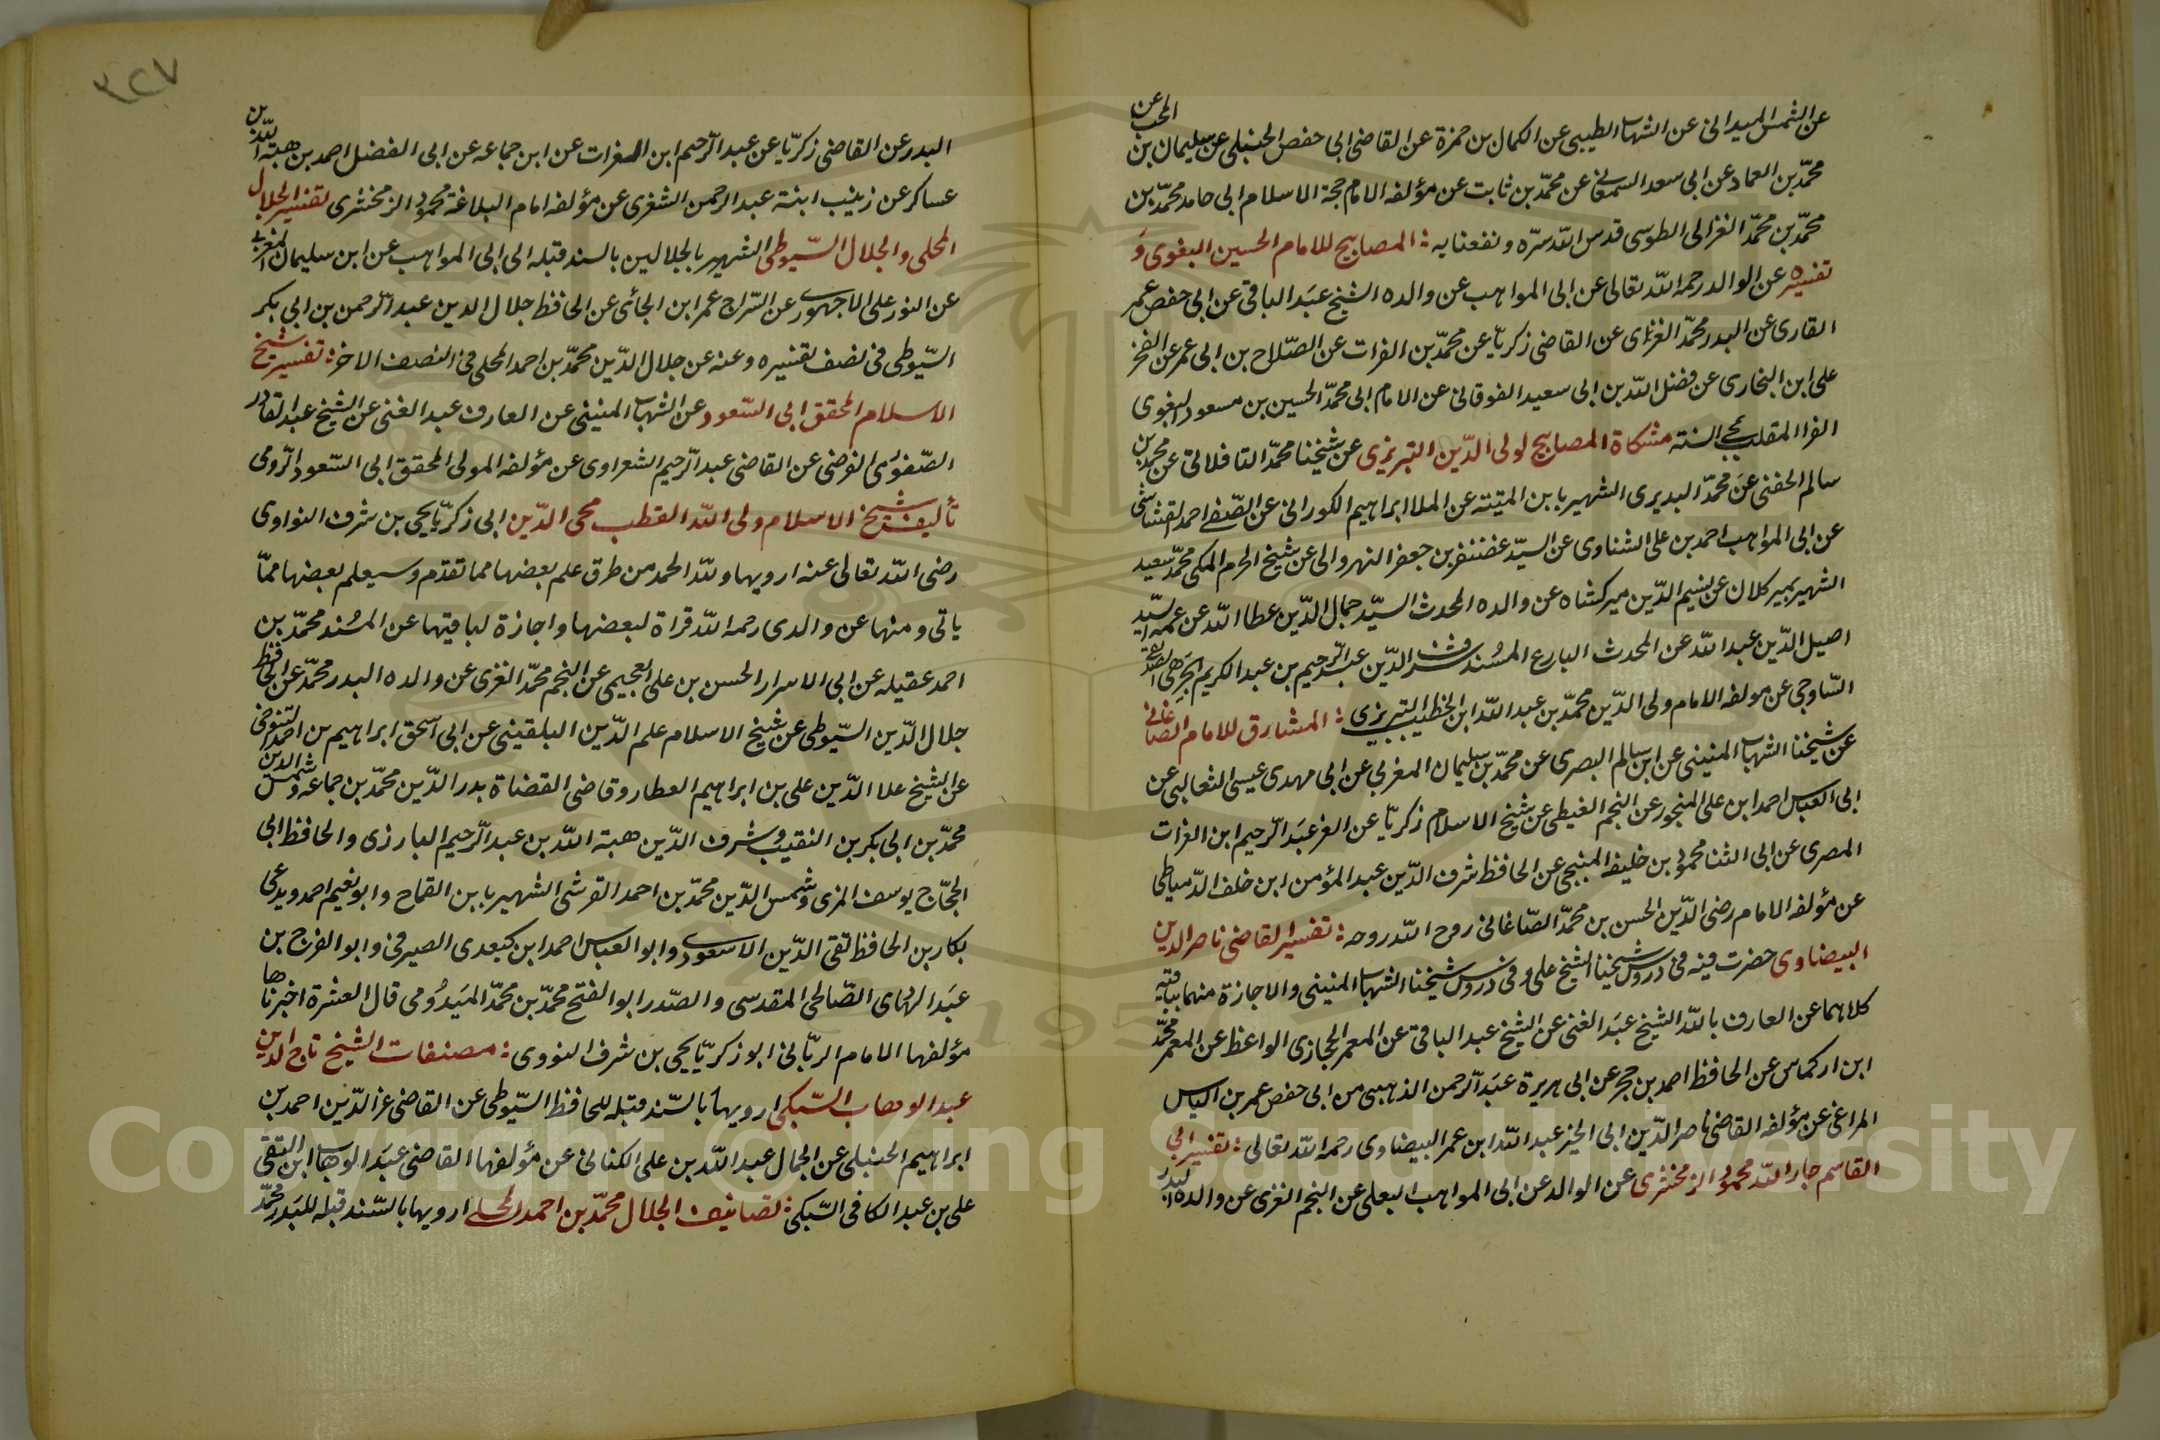 عن الشمس الميدانى عن الشهاب الطيبى عن الكمال بن حمزة عن القاضى ابى حفص الحنبلى عن سليمان بن المحب عن
محمّد بن العماد عن ابى سعد السمعانى عن محمّد بن ثابت عن مؤلفه الامام حجة الاسلام ابى حامد محمّد بن
محمّد بن محمّد الغزالى الطوسى قدس الله سرّه ونفعنا به : المصابيح للامام الحسين البغوى وَ
تفسيره عن الوالد رحمه الله تعالى عن ابى المواهب عن والده الشيخ عبَد الباقى عن ابى حفص عمر
القارى عن البدر محمّد الغزى عن القاضى زكريّا عن محمّد بن الفرات عن الصّلاح بن ابى عمر عن الفخر
على ابن البخارى عن فضل الله بن ابى سعيد الفوقانى عن الامام ابى محمّد الحسين بن مسعود البغوى
الفرا الملقب بمحيى السنة مشكاة المصابيح لولى الدّين التبريزى عن شيخنا محمّد التافلاتى عن محمد بن
سالم الحفنى عن محمّد البديرى الشهير بابن الميتة عن الملا ابراهيم الكورانى عن الصّفى احمد القشاشى
عن ابى المواهب احمد بن على الشناوى عن السيّد غضنفر بن جعفر النهروالى عن شيخ الحرم المكى محمّد سعيد
الشهير بمير كلان عن نسيم الدّين ميركشاه عن والده المحدث السيّد جمال الدّين عطا الله عن عمه السيّد
اصيل الدّين عبد الله عن المحدث البارع المسُند شرف الدّين عبد الرّحيم بن عبد الكريم الجَرهى الصّديقى
السّاوجى عن مولفه الامام ولى الدّين محمّد بن عبد الله ابن الخطيب التبريزى : المشارق للامام الصاغانى
عن شيخنا الشهاب المنينى عن ابن سالم البصرى عن محمّد بن سليمان المغربى عن ابى مهدى عيسى الثعالبى عن
ابى العباس احمد ابن على المنجور عن النجم الغيطى عن شيخ الاسلام زكريّا عن العز عبَد الرّحيم ابن الفرات
المصرى عن ابى الثنا محمود بن خليفه المنبجى عن الحافظ شرف الدّين عبد المؤمن ابن خلف الدّمياطى
عن مؤلفه الامام رضى الدّين الحسن بن محمّد الصّاغانى روح الله روحه : تفسير القاضى ناصر الدين
البيضاوى حضرت فيه فى دروس شيخنا الشيخ على وفى دروس شيخنا الشهاب المنينى والاجازة منهما بباقيه
كلاهما عن العارف بالله الشيخ عبَد الغنى عن الشيخ عبد الباقى عن المعمر الحجازى الواعظ عن المعمر محمّد
ابن اركماس عن الحافظ احمد بن حجر عن ابى هريرة عبَد الرّحمن الذهبى من ابى حفص عمر بن الياس
المراغى عن مؤلفه القاضى ناصر الدّين ابى الخير عبد الله ابن عمر البيضاوى رحمه الله تعالى : تفسير ابى
القاسم جار الله محمود الزمخشرى عن الوالد عن ابى المواهب البعلى عن النجم الغزى عن والده البدر
٣٢٧
البدر عن القاضى زكريّا عن عبد الرّحيم ابن الفرات عن ابن جماعه عن ابى الفضل احمد بن هبة الله بن
عساكر عن زينب ابنة عبد الرحمن الشغرى عن مؤلفه امام البلاغة محمود الزمخشرى تفسير الجلال
المحلى والجلال السّيوطى الشهير بالجلالين بالسند قبله الى ابى المواهب عن ابن سليمان المغربى
عن النور على الاجهورى عن السّراج عمر ابن الجائى عن الحافظ جلال الدين عبد الرّحمن بن ابى بكر
السّيوطى فى نصف تفسيره وعنه عن جلال الدّين محمّد بن احمد المحلى فى النصف الاخر : تفسير شيخ
الاسلام المحقق ابى السّعود عن الشهاب المنينى عن العارف عبد الغنى عن الشيخ عبد القادر
الصّفوُرى الفرضى عن القاضى عبد الرّحيم الشعراوى عن مؤلفه المولى المحقق ابى السّعود الرّومى
تأليف شيخ الاسلام ولى الله القطب محى الدّين ابى زكريّا يحيى بن شرف النواوى
رضى الله تعالى عنه ارويها ولله الحمد من طرق علم بعضها مما تقدّم وسيعلم بعضها ممّا
ياتى ومنها عن والدى رحمه الله قراة لبعضها واجازة لباقيها عن المسُند محمّد بن
احمد عقيله عن ابى الاسرار الحسن بن على العجيمى عن النجم محمّد الغزى عن والده البدر محمّد عن الحافظ
جلال الدّين السّيوطى عن شيخ الاسلام علم الدّين البلقينى عن ابى اسحق ابراهيم بن احمد التنوخى
عن الشيخ علا الدّين على بن ابراهيم العطار وقاضى القضاة بدر الدّين محمّد بن جماعه وشمس الدين
محمّد بن ابى بكر بن النقيب وشرف الدّين هبة الله بن عبد الرّحيم البارزى والحافظ ابى
الحجّاج يوسف المزى وشمس الدّين محمّد بن احمد القرشى الشهير بابن القماح وابو نعيم احمد ويدعى
بكار بن الحافظ تقى الدّين الاسعودى وابو العباس احمد ابن كيعدى الصيرفى وابو الفرج بن
عبَد الهادى الصّالحى المقدسى والصّدر ابو الفتح محمّد بن محمّد الميَدُومى قال العشرة اخبرنا بها
مؤلفها الامام الربّانى ابو زكريّا يحيى بن شرف النووى : مصنفات الشيخ تاج الدين
عبد الوهاب السّبكى ارويها بالسّند قبله للحافظ السّيوطى عن القاضى عز الدّين احمد بن
ابراهيم الحنبلى عن الجمال عبد الله بن على الكنانى عن مؤلفها القاضى عبَد الوهاب ابن التقى
على بن عبد الكافى السّبكى : تصانيف الجلال محمّد بن احمد المحلى ارويها بالسّند قبله للبَدر محمّد
Copyright © King Saud University
1957